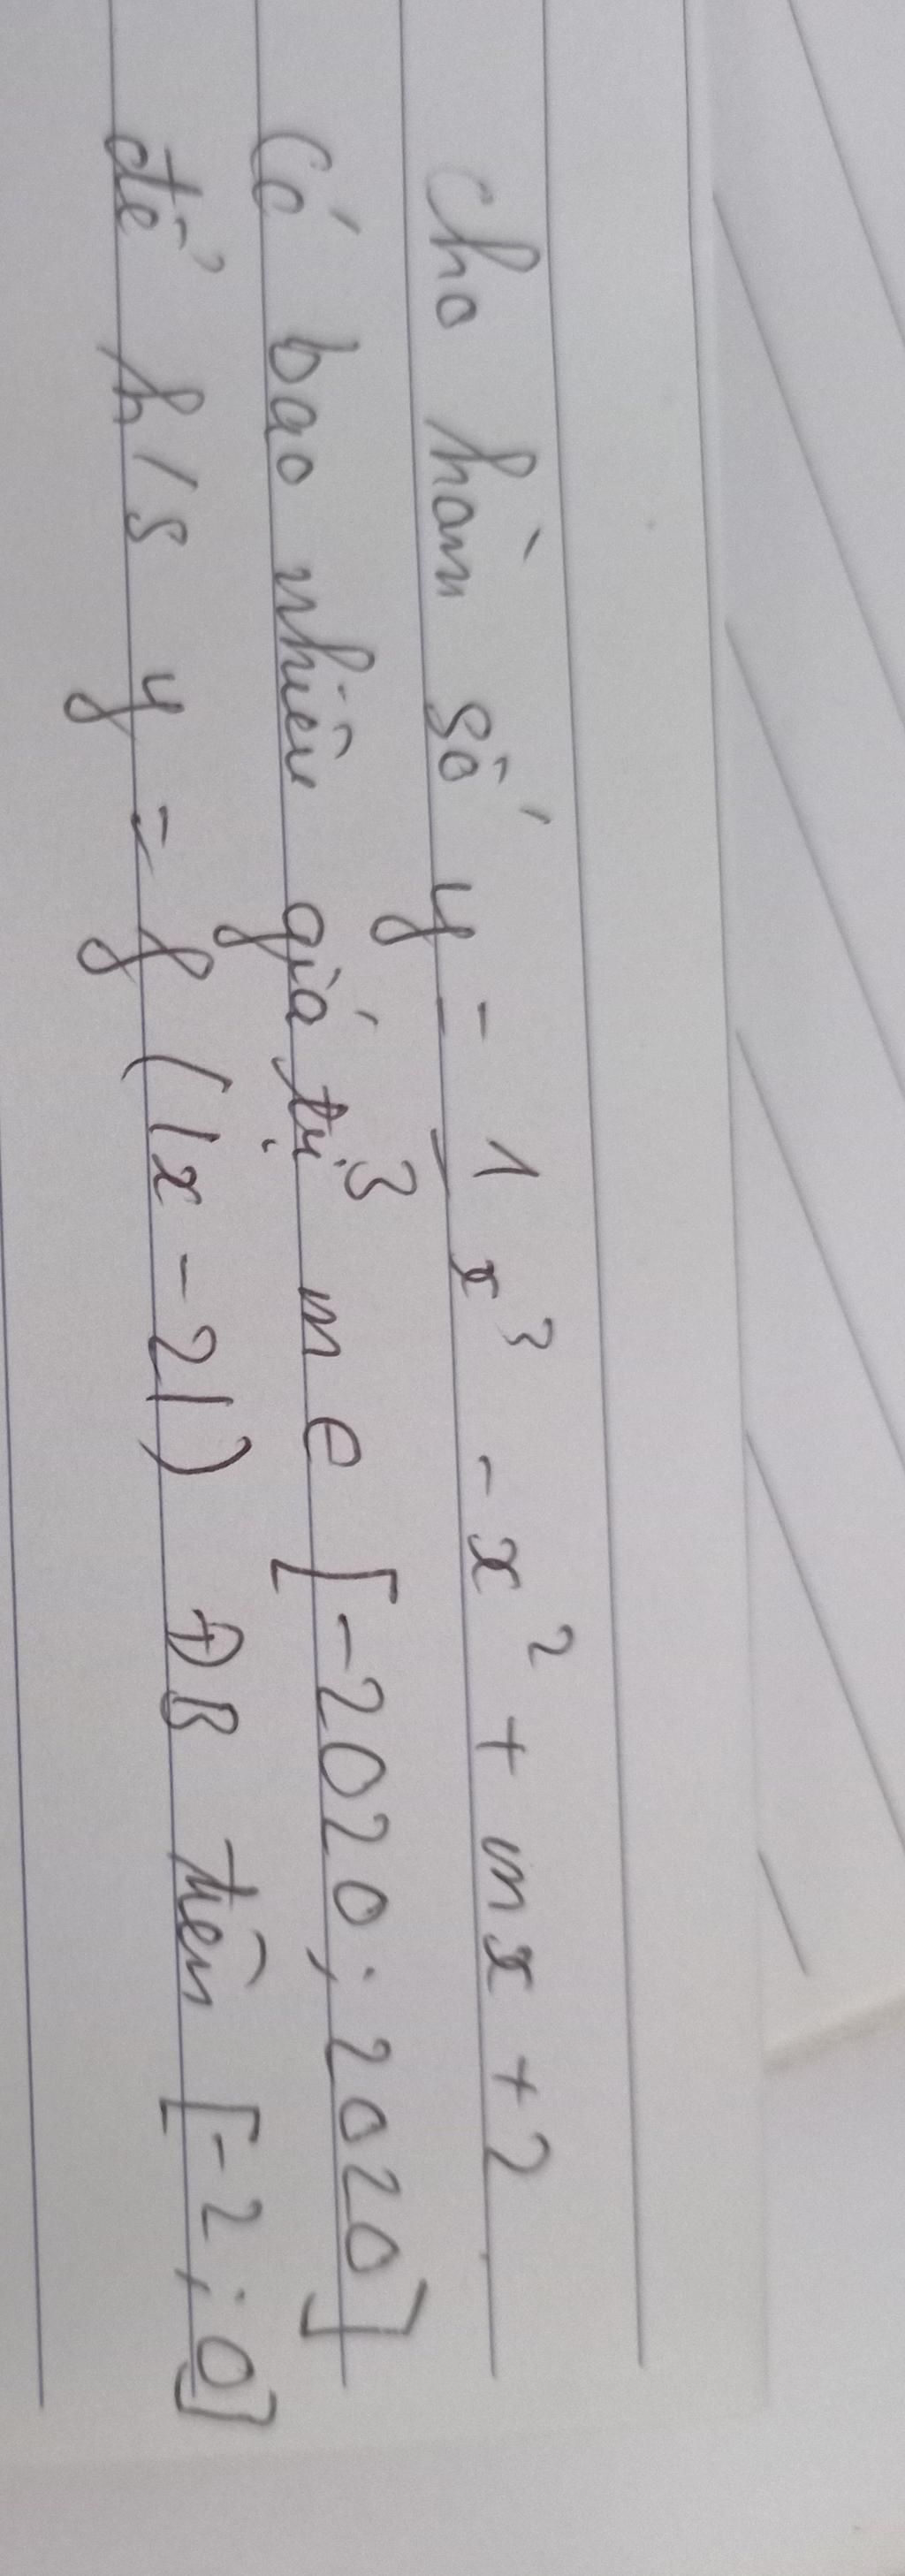 Cho hàm số y = 1/3 x³ - x² + mx + 2
Có bao nhiêu giá trị m e [-2020; 2020]
để h/s y = f (|x - 2|) ĐB trên [-2; 0]